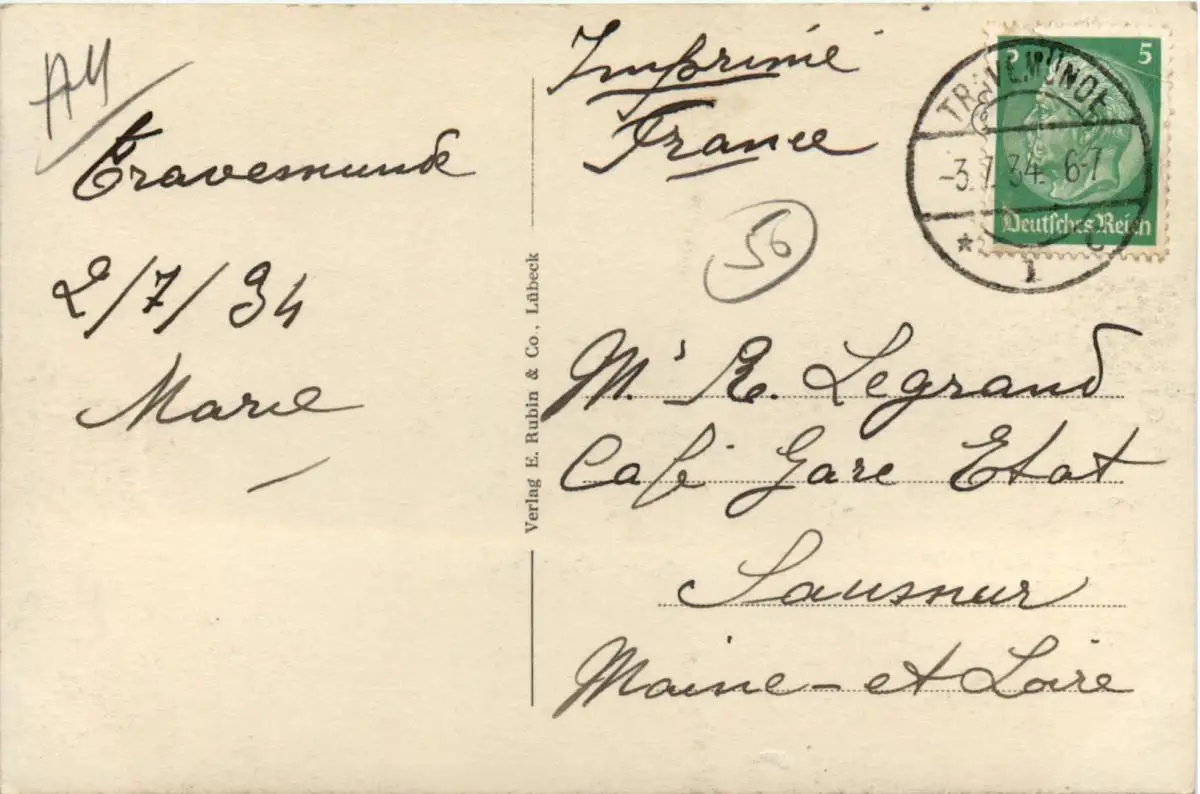 AM
Travemunde
2/7/34
Marie
Verlag E. Rubin & Co., Lübeck
Imprimé
France
56
5 5
Deutsches Reich
TRAVEMÜNDE
-3.7.34. 6-7
* 1 c
Mr R. Legrand
Café Gare Etat
Saumur
Maine-et Loire